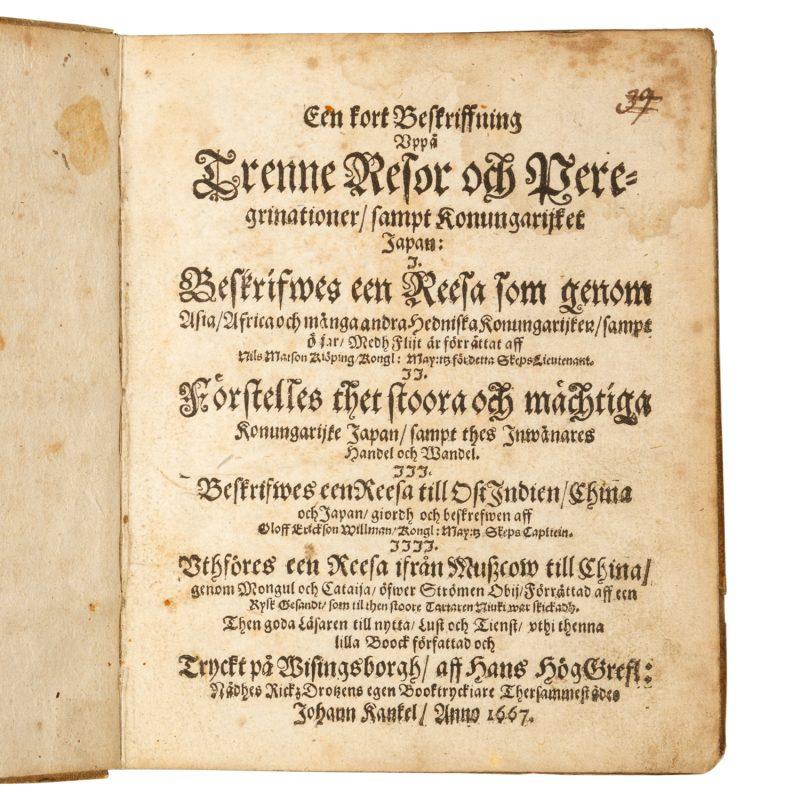 37
Een kort Beskriffning
Uppå
Trenne Resor och Pere-
grinationer/ sampt Konungarijket
Japan:
I.
Beskrifwes een Reesa som genom
Asia/ Africa och många andra Hedniska Konungarijken/ sampt
Öjar/ Medh Flijt är förrättat aff
Nils Matson Kiöping/ Kongl: May:tz fördetta Skeps Lieutenant.
II.
Förstelles thet stoora och mächtiga
Konungarijke Japan/ sampt thes Inwånares
Handel och Wandel.
III.
Beskrifwes een Reesa till Ost Indien/ China
och Japan/ giordh och beskrefwen aff
Oloff Erickson Willman/ Kongl: May:tz Skeps Capitein.
IIII.
Vthföres een Reesa ifrån Muszcow till China/
genom Mongul och Cataija/ öfwer Strömen Obij/ Förrättad aff een
Rysk Gesandt/ som til then stoore Tartaren Niuki war skickadh.
Then goda Läsaren till nytta/ Lust och Tienst/ vthi thenna
lilla Boock författad och
Tryckt på Wisingsborgh/ aff Hans HögGrefl:
Nådhes Rickz Drotzens egen Booktryckiare Thersammestädes
Johann Kankel/ Anno 1667.